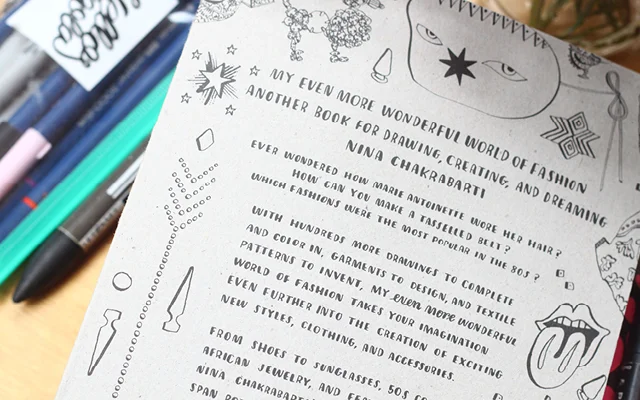 MY EVEN MORE WONDERFUL WORLD OF FASHION
ANOTHER BOOK FOR DRAWING, CREATING, AND DREAMING
NINA CHAKRABARTI
EVER WONDERED HOW MARIE ANTOINETTE WORE HER HAIR?
HOW CAN YOU MAKE A TASSELLED BELT?
WHICH FASHIONS WERE THE MOST POPULAR IN THE 80s?
WITH HUNDREDS MORE DRAWINGS TO COMPLETE
AND COLOR IN, GARMENTS TO DESIGN, AND TEXTILE
PATTERNS TO INVENT, MY even more WONDERFUL
WORLD OF FASHION TAKES YOUR IMAGINATION
EVEN FURTHER INTO THE CREATION OF EXCITING
NEW STYLES, CLOTHING, AND ACCESSORIES.
FROM SHOES TO SUNGLASSES, 50s CO
AFRICAN JEWELRY, AND FEA
NINA CHAKRABARTI
SPAN